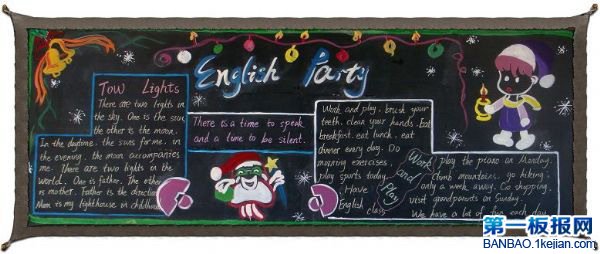 English Party
Tow Lights
There are two lights in
the sky. One is the sun
the other is the moon.
In the daytime. the suns for me. in
the evening. the moon accompanies
me. There are two lights in the
world. One is father. The other
is mother. Father is the direction
Mom is my lighthouse in childhood
There is a time to speak
and a time to be silent.
Work and play. brush your
teeth. clean your hands. Eat
breakfast. eat lunch. eat
dinner every day. Do
morning exercises.
play sports today.
Have
English class
Work
and
Play
play the piano on Monday.
Climb mountains. go hiking.
only a week away. Go shopping.
visit grandparents on Sunday.
We have a lot of fun each day.
第一板报网
BANBAO.1kejian.com